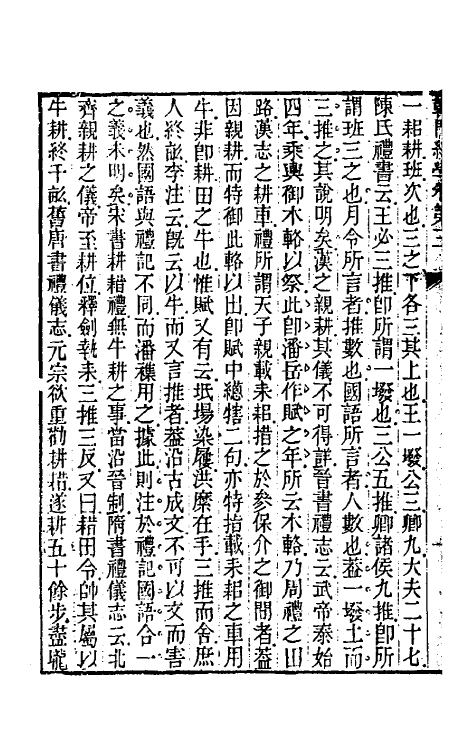 一耜耕班次也三之下各三其上也王一墢公三卿九大夫二十七
陳氏禮書云王必三推卽所謂一墢也三公五推卿諸侯九推卽所
謂班三之也月令所言者推數也國語所言者人數也葢一墢土而
三推之其說明矣漢之親耕其儀不可得詳晉書禮志云武帝泰始
四年乘輿御木輅以祭此卽潘岳作賦之年所云木輅乃周禮之田
路漢志之耕車禮所謂天子親載耒耜措之於參保介之御閒者葢
因親耕而特御此輅以出卽賦中總犗二句亦特指載耒耜之車用
牛非卽耕田之牛也惟賦又有云坻場染屨洪縻在手三推而舍庶
人終畝李注云旣云以牛而又言推者葢沿古成文不可以文而害
義也然國語與禮記不同而潘襍用之據此則注於禮記國語合一
之義未明矣宋書耕耤禮無牛耕之事當沿晉制隋書禮儀志云北
齊親耕之儀帝至耕位釋劒執耒三推三反又曰耤田令帥其屬以
牛耕終千畝舊唐書禮儀志元宗欲重勸耕耤遂耕五十餘步盡壠